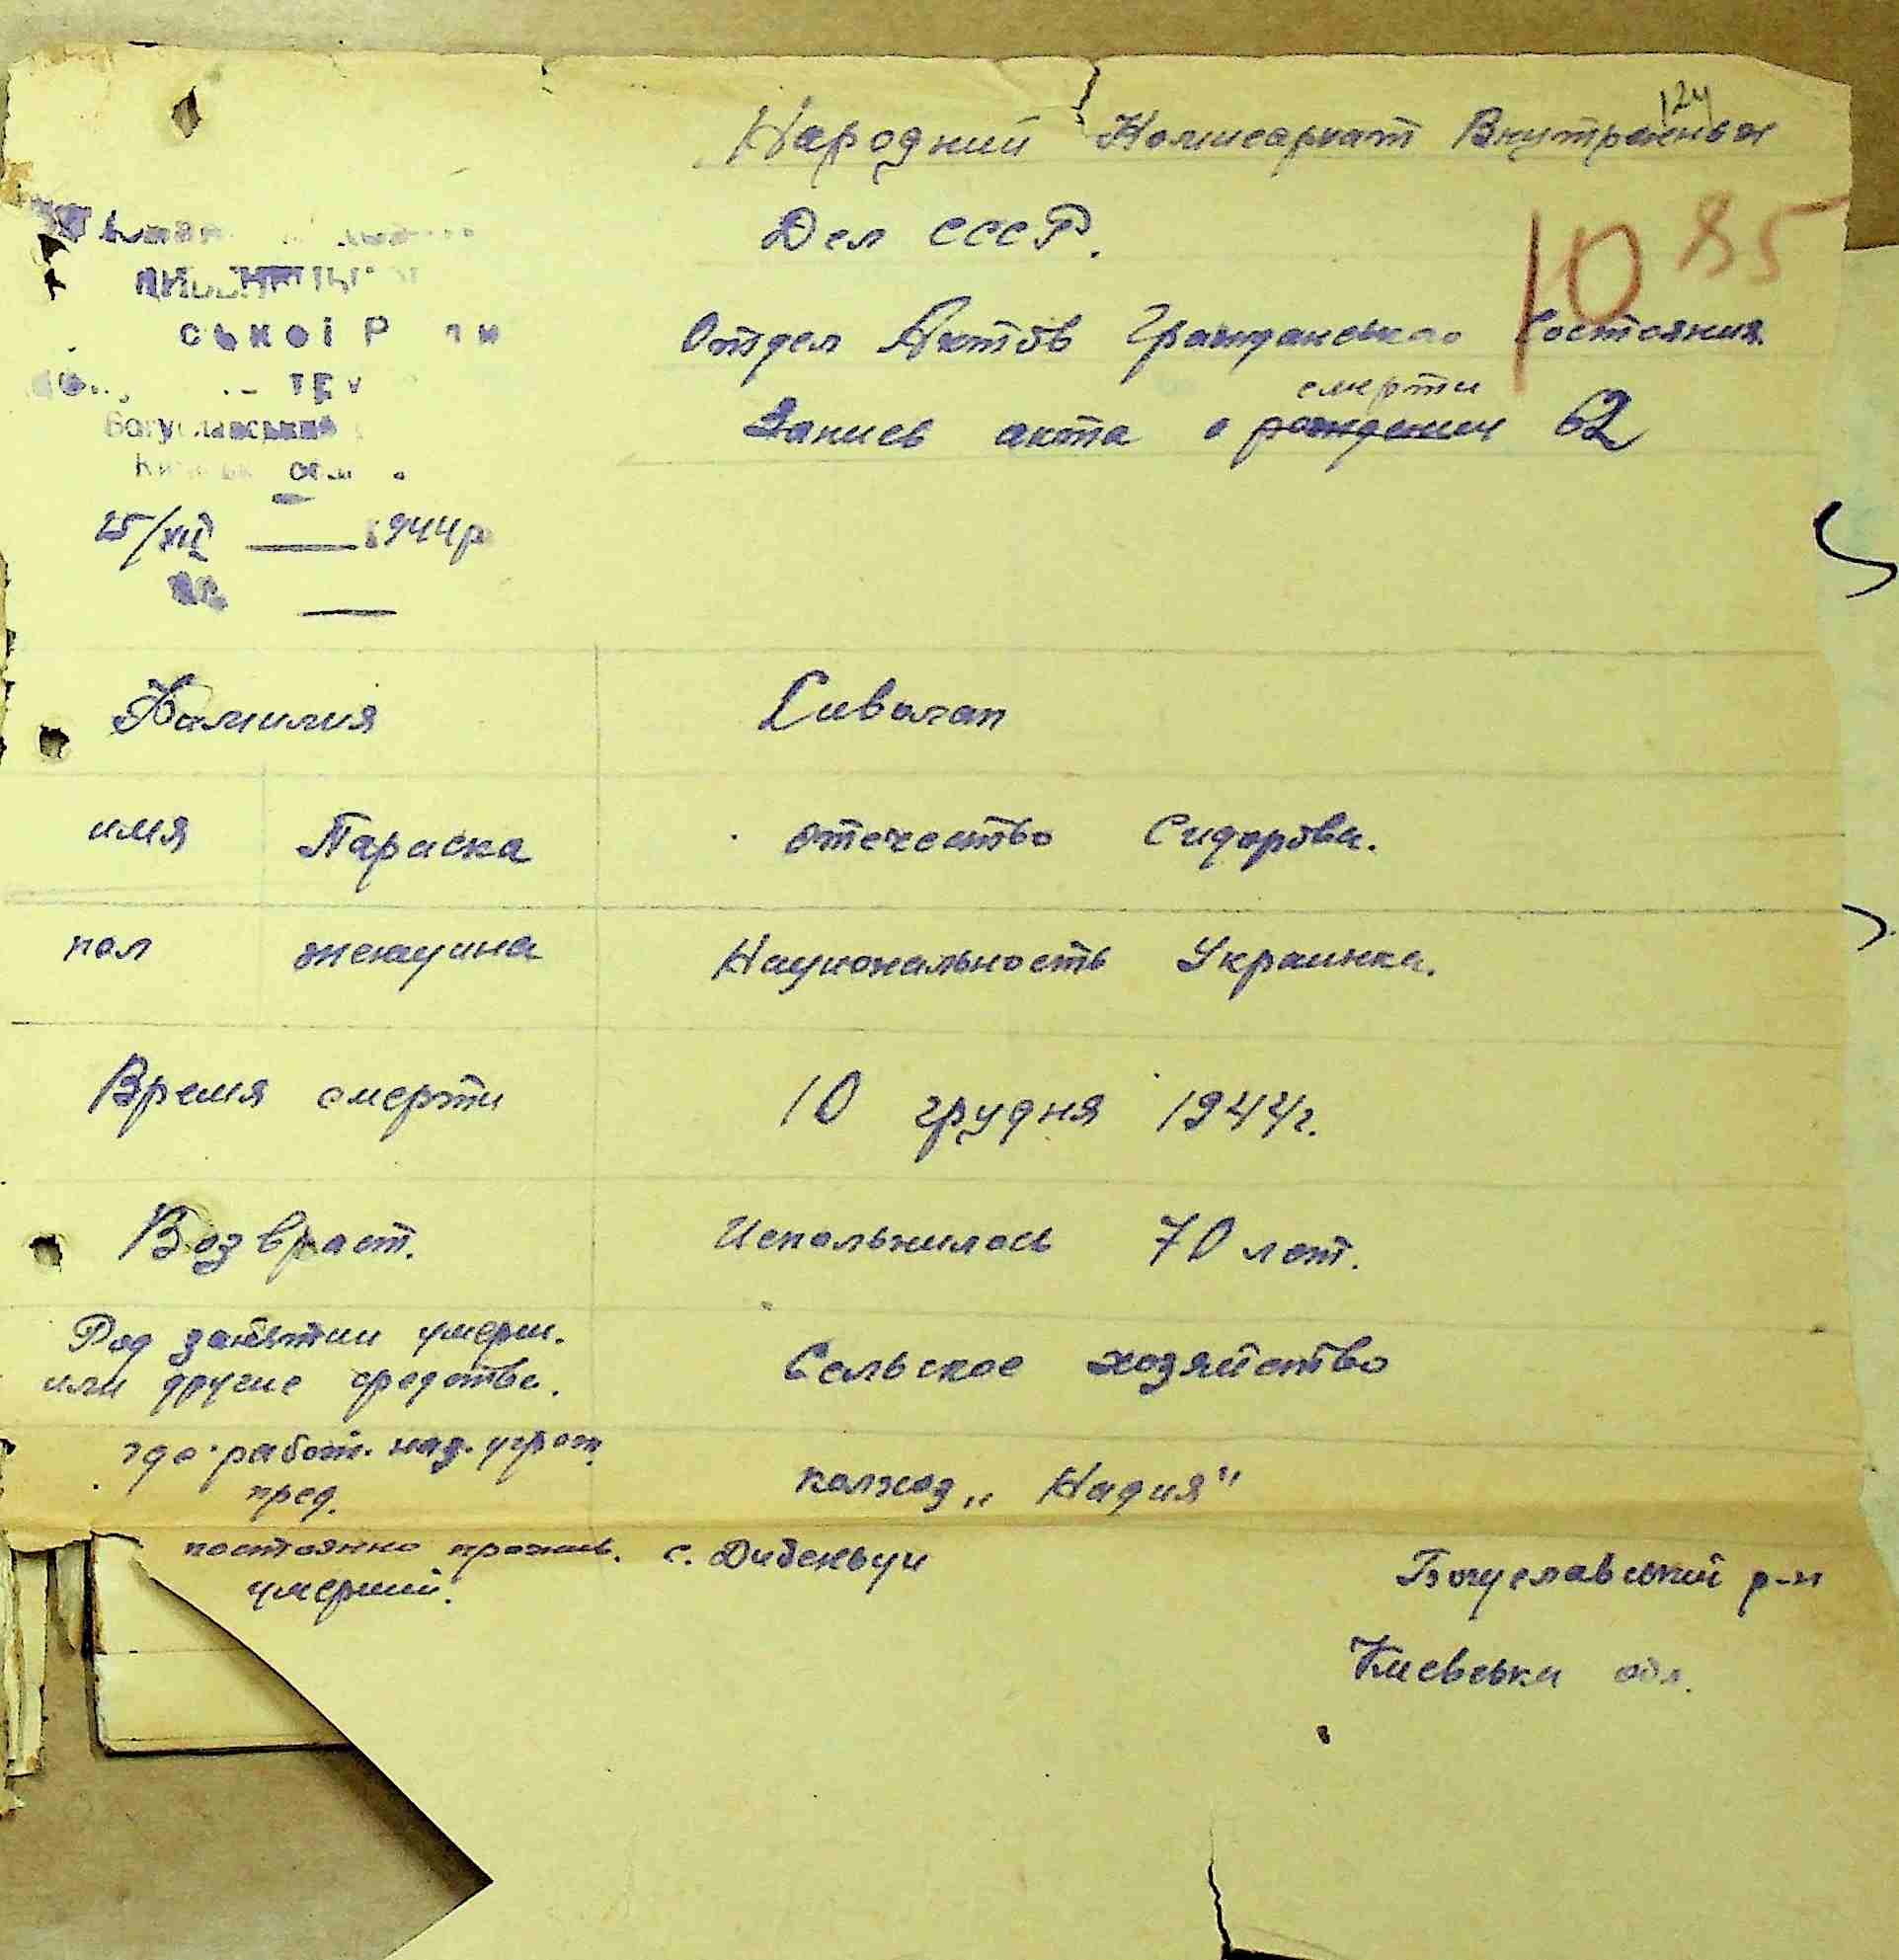 124
Народний Комисариат Внутренных
Дел СССР.
1085
ської Р
Отдел Актов Гражданського Состояния.
смерти
Запись акта о рождении 62
Богуславський
25/XII 1944р
Фамилия Сиволап
имя Параска отечество Сидоровн.
пол женщина Национальность Украинка.
Время смерти 10 грудня 1944г.
Возвраст. Испольнилось 70 лет.
Род занятии умерш.
или другие средства. Сельское хозяйство
где работ.
пред. колхоз „Надия"
постоянно прожив. с. Дибеньци Богуславський р-н
умерший. Киевськи обл.